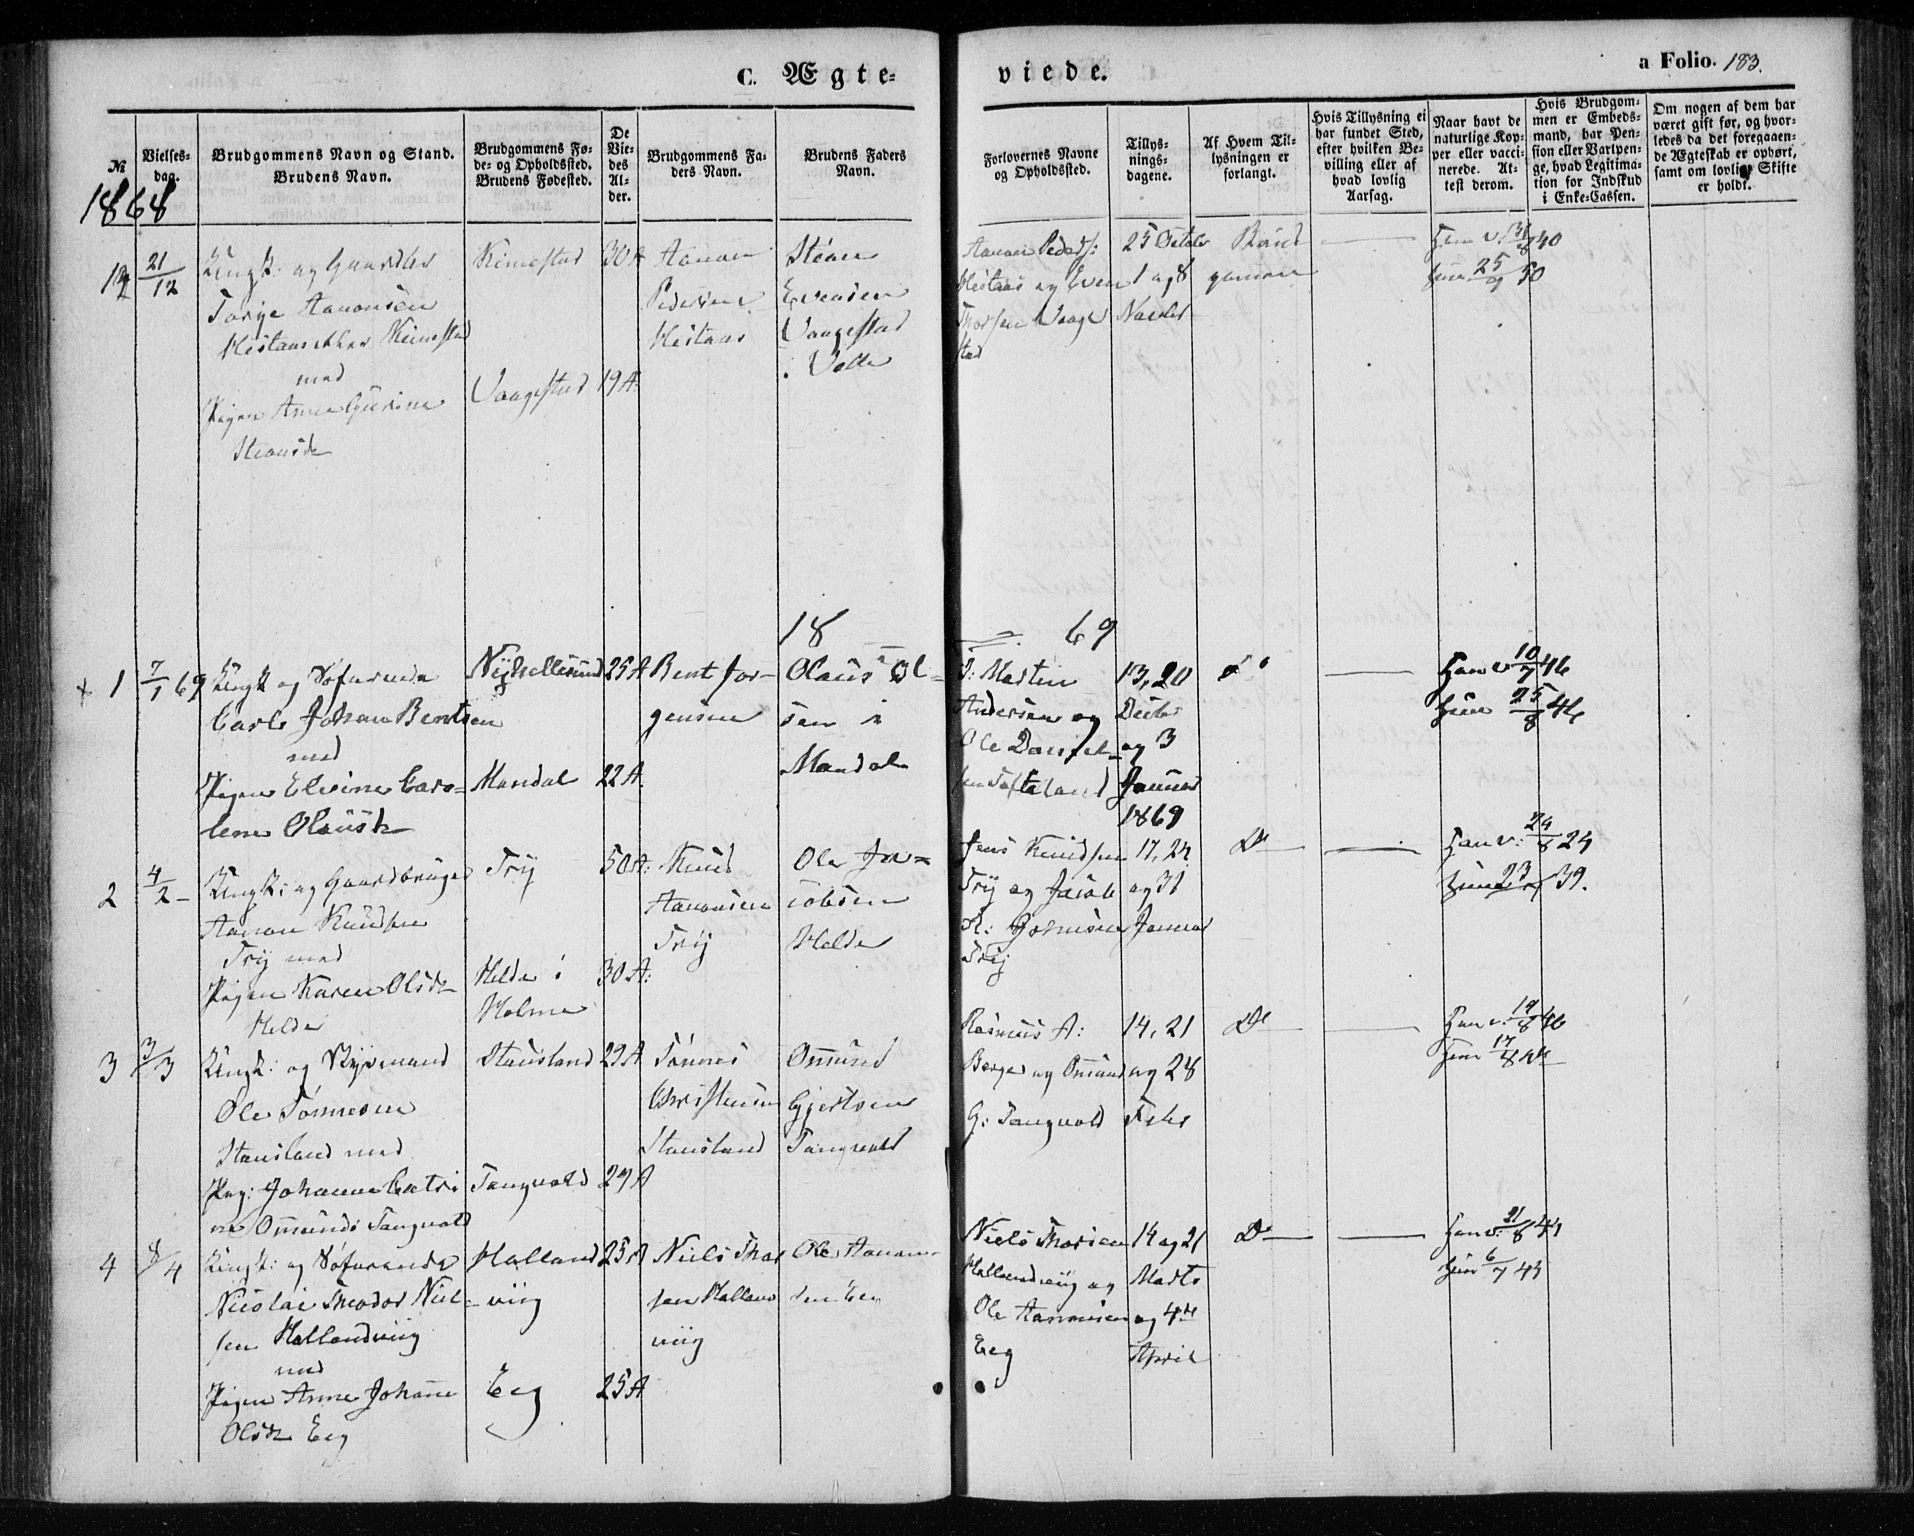 C. Ægte-
viede.
a Folio. 183.
№
Vielses-
dag.
Brudgommens Navn og Stand.
Brudens Navn.
Brudgommens Fø-
de- og Opholdssted.
Brudens Fødested.
De
Vie-
des
Al-
der.
Brudgommens Fa-
ders Navn.
Brudens Faders
Navn.
Forlovernes Navne
og Opholdssted.
Tillys-
nings-
dagene.
Af Hvem Til-
lysningen er
forlangt.
Hvis Tillysning ei
har fundet Sted,
efter hvilken Be-
villing eller af
hvad lovlig
Aarsag.
Naar havt de
naturlige Kop-
per eller vacci-
nerede. At-
test derom.
Hvis Brudgom-
men er Embeds-
mand, har Pen-
sion eller Vartpen-
ge, hvad Legitima-
tion for Indskud
i Enke-Cassen.
Om nogen af dem har
været gift før, og hvor-
ledes da det foregaaen-
de Ægteskab er ophørt,
samt om lovlig Skifte
er holdt.
1868
12
21/12
Ungk: og Gaardbr
Torje Aanonsen
med
Pigen Anne
Kimestad
30 A
Vaagestad 19 A.
Aanon
Pedersen
Hestaas
Stean
Evensen
Vaagestad
i Valle
Aanon Peders:
Hestaas og Even
Thorsen Vaage
stad
25 Octob
1 og 8
Novbr
Brud
gommen
Han v. 31/8 40
hun 25/9 50
18 69
+ 1
7/1 69
Ungk og Søfarende
Carl Johan Bentsen
med
Pigen Elevine Caro-
lene Olausdr
Nyhellesund 25 A
Mandal 22 A.
Bent Jør-
gensen
Olaus Ol-
sen i
Mandal
T: Martin
Andersen og
Ole Daniel-
sen Tofteland
13, 20
Decbr
og 3
Januar
1869
Han v 10/7 46
hun 25/8 46
2
4/2
Ungk: og Gaardbruger
Aanon Knudsen
Try med
Pigen Karen Olsdr
Helde
Try
50 A:
Helde i
Holme
30 A:
Knud
Aanonsen
Try
Ole Ja-
cobsen
Helde
Jens Knudsen
Try og Jacob
K: Gosmon
Try
17, 24
og 31
Januar
Do
Han v: 24/8 24
hun 23/9 39.
3
3/3
Ungk: og Styrmand
Ole Tønnesen
Stausland med
Pig: Johanne Catri
ne Omundsd Tangvald
Stausland 29 A
Tangvald 24 A
Tønnes
Christensen
Stausland
Omund
Gjertsen
Tangvald
Rasmus A:
Berge og Omund
G: Tangvald
14, 21
og 28
Febr
Do
Han v. 19/8 40
hun 17/8 44
4
8/4
Ungk: og Søfarende
Nicolai Theodor Niel-
sen Hallandviig
med
Pigen Anne Johanne
Olsdr Eeg
Halland
viig
25 A
Eeg
25 A
Niels Thor
sen Halland
viig
Ole Aanon-
sen Eeg
Niels Thorsen
Hallandviig og
Ole Aanonsen
Eeg
14 og 21
Marts
og 4de
April
Do
Han v. 21/8 44
hun 6/7 45